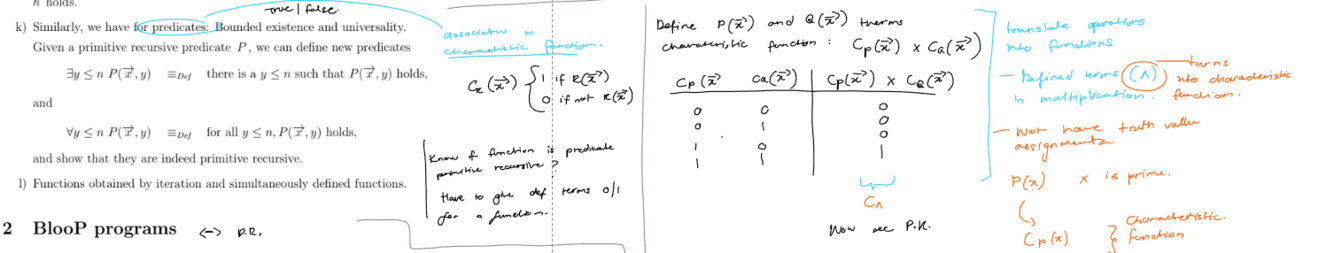 n holds.
true | false
k) Similarly, we have for predicates: Bounded existence and universality.
Given a primitive recursive predicate P, we can define new predicates
∃y ≤ n P(x⃗, y) ≡Def there is a y ≤ n such that P(x⃗, y) holds,
and
∀y ≤ n P(x⃗, y) ≡Def for all y ≤ n, P(x⃗, y) holds,
and show that they are indeed primitive recursive.
l) Functions obtained by iteration and simultaneously defined functions.
2 BlooP programs <-> P.R.
associates w
characteristic function.
C_R(x⃗) { 1 if R(x⃗)
0 if not R(x⃗)
Know if function is predicate
primitive recursive?
Have to give def terms 0/1
for a function.
Define P(x⃗) and Q(x⃗) therms
charateristic function: Cp(x⃗) x CQ(x⃗)
Cp(x⃗) CQ(x⃗) Cp(x⃗) x CQ(x⃗)
0 0 0
0 1 0
1 0 0
1 1 1
C∧
Now see P.R.
translate operations
into functions
- Defined terms (∧) turns into characteristic
in multiplication. function.
- Not have truth value
assignments
P(x) x is prime.
Cp(x) } Characteristic
function